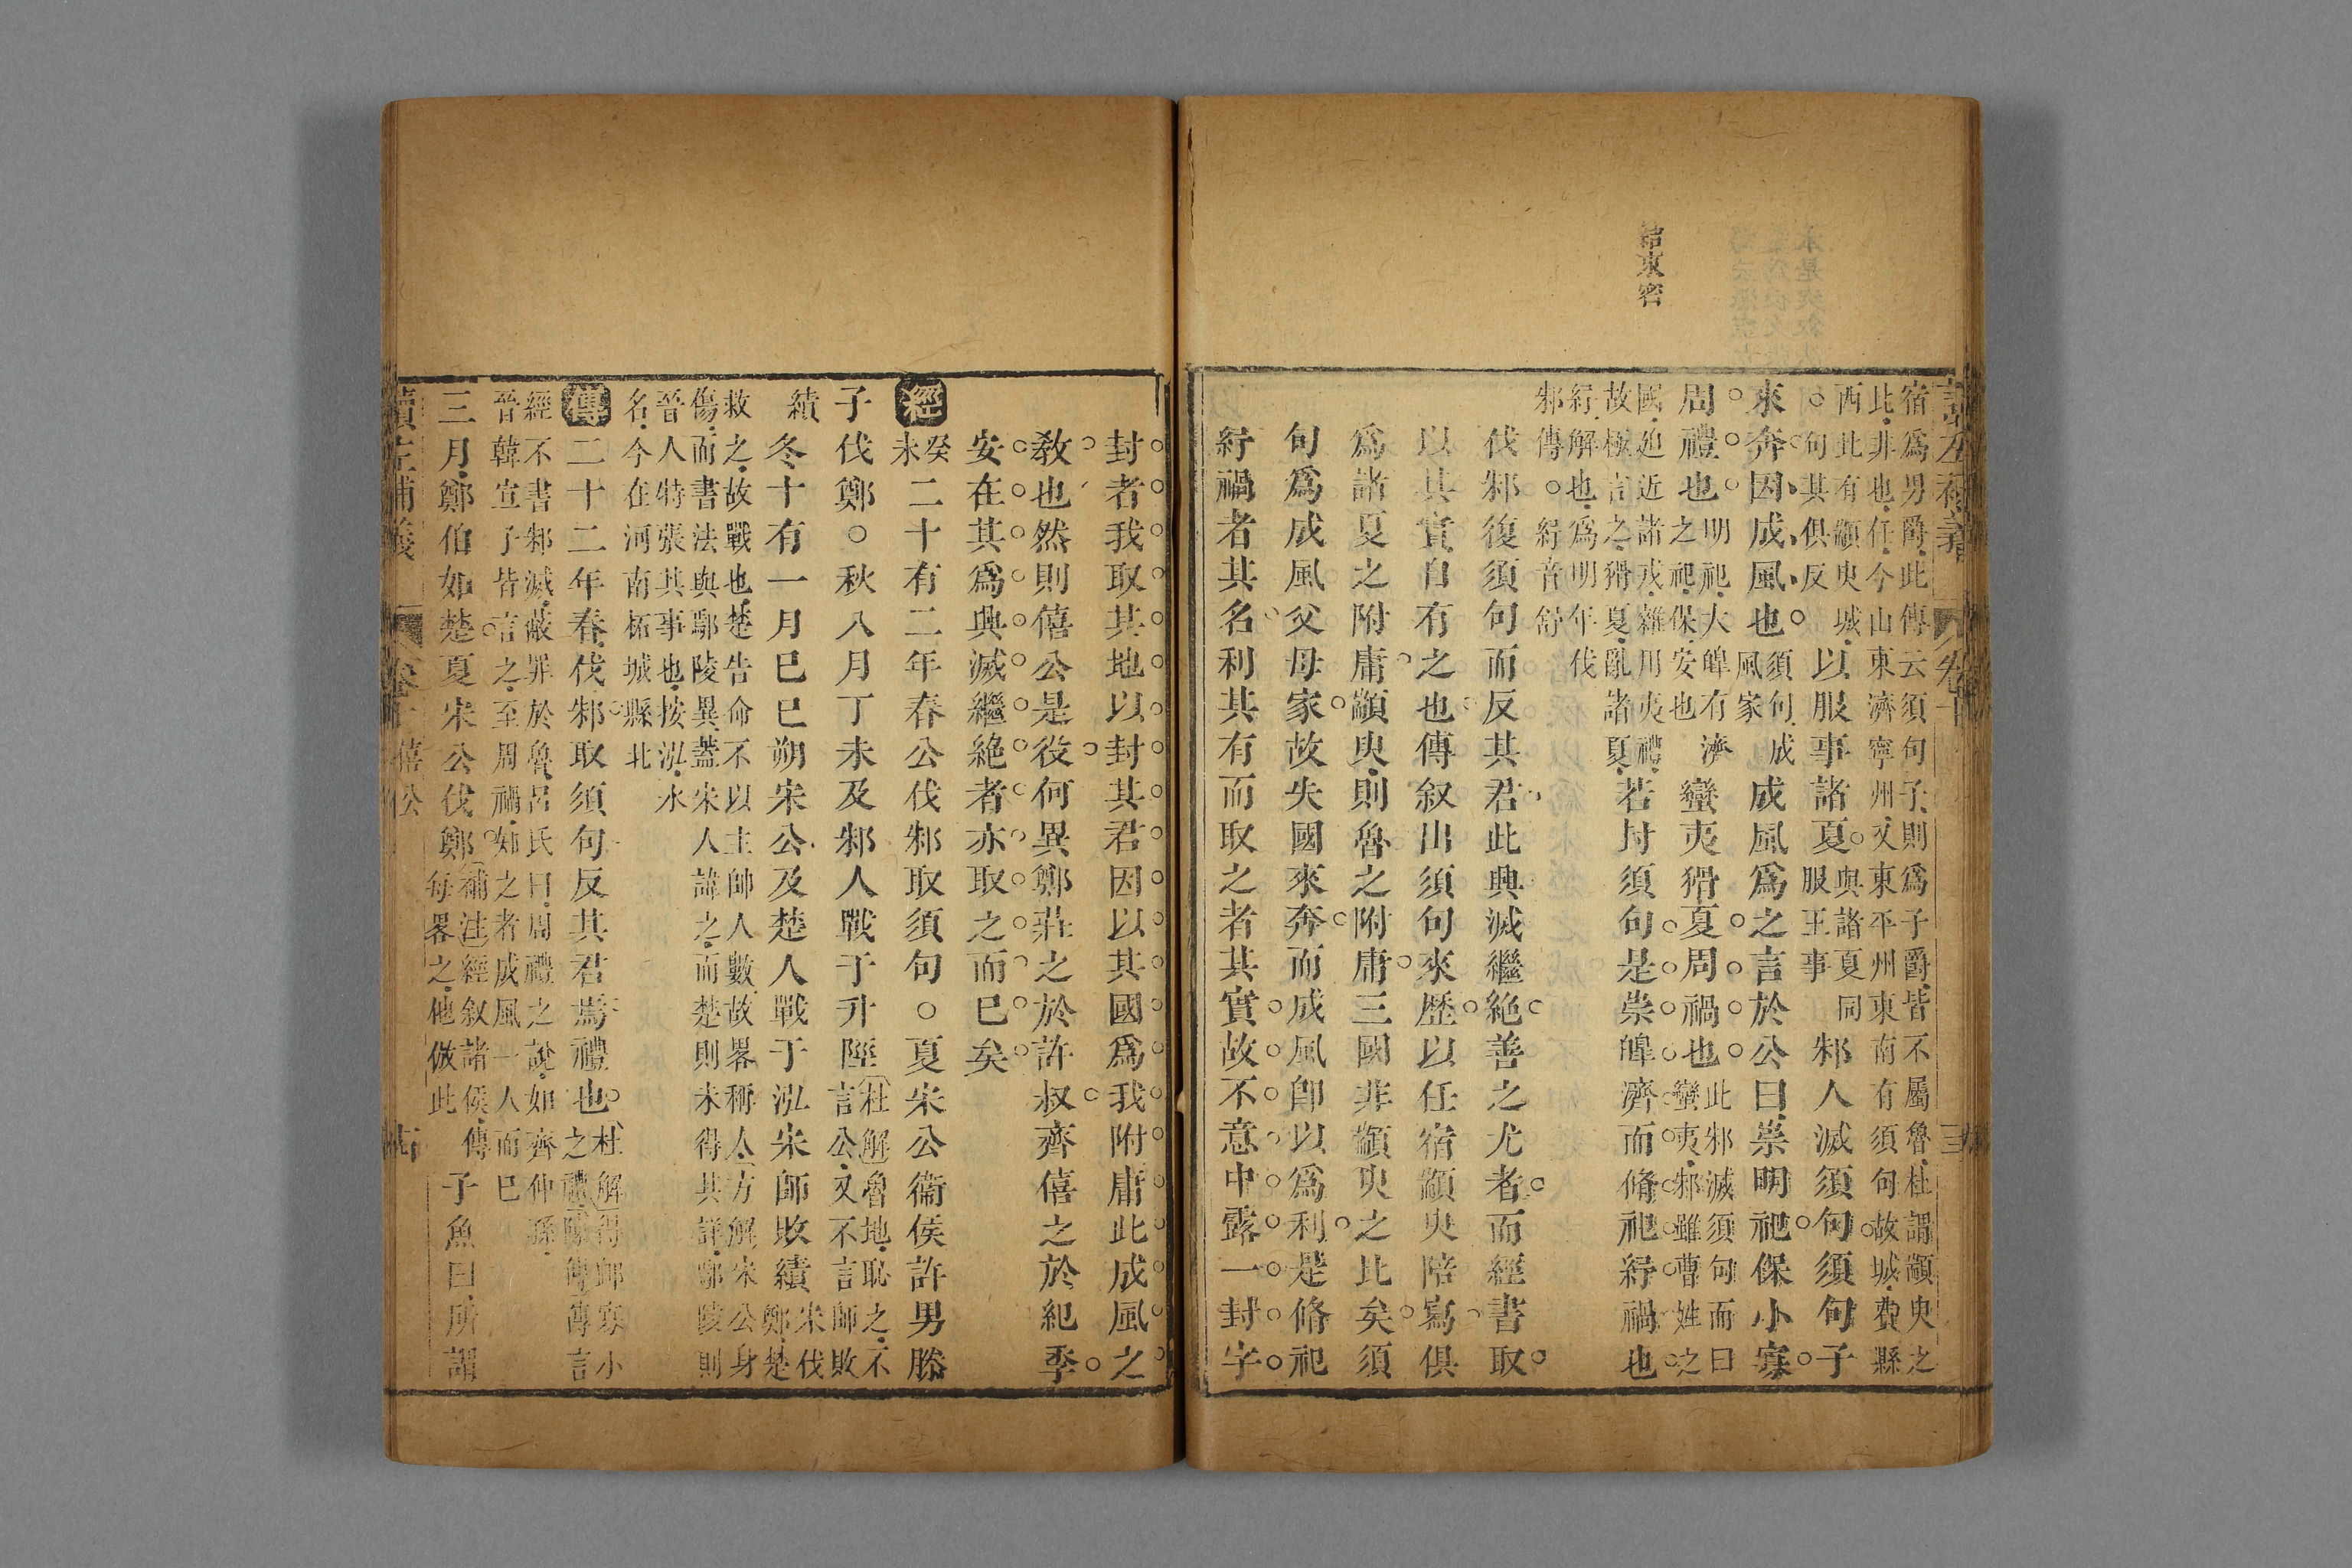 結來密
讀左補義
卷十
宿爲男爵此傳云須句子則爲子爵皆不屬魯杜謂顓臾之
此非也任今山東濟寧州又東平州東南有須句故城費縣
西北有顓臾城
○句其俱反
以服事諸夏
與諸夏同
服王事
邾人滅須句須句子
來奔因成風也
須句成
風家
成風爲之言於公曰崇明祀保小寡
周禮也
明祀大皥有濟
之祀保安也
蠻夷猾夏周禍也
此邾滅須句而曰
蠻夷邾雖曹姓之
國迫近諸戎雜用夷禮
故極言之猾夏亂諸夏
若封須句是崇皥濟而脩祀紓禍也
紓解也爲明年伐
邾傳○紓音舒
伐邾復須句而反其君此興滅繼絶善之尤者而經書取
以其實自有之也傳叙出須句來歷以任宿顓臾陪寫俱
爲諸夏之附庸顓臾則魯之附庸三國非顓臾之比矣須
句爲成風父母家故失國來奔而成風卽以爲利是脩祀
紓禍者其名利其有而取之者其實故不意中露一封字
封者我取其地以封其君因以其國爲我附庸此成風之
敎也然則僖公是役何異鄭莊之於許叔齊僖之於紀季
安在其爲興滅繼絶者亦取之而已矣
經
癸
未
二十有二年春公伐邾取須句○夏宋公衞侯許男滕
子伐鄭○秋八月丁未及邾人戰于升陘
杜解魯地恥之不
言公又不言師敗
績
冬十有一月己巳朔宋公及楚人戰于泓宋師敗績
宋伐
鄭楚
救之故戰也楚告命不以主帥人數故畧稱人方解宋公身
傷而書法與鄢陵異蓋宋人諱之而楚則未得其詳鄢陵則
晉人特張其事也按泓水
名今在河南柘城縣北
傳
二十二年春伐邾取須句反其君焉禮也
杜解得䘏寡小
之禮
傳言
經不書邾滅蔽罪於魯呂氏曰周禮之說如齊仲孫
晉韓宣子皆言之至周禍
之者成風一人而已
三月鄭伯如楚夏宋公伐鄭
補注經叙諸侯傳
每畧之他倣此
子魚曰所謂
讀左補義
卷十 僖公